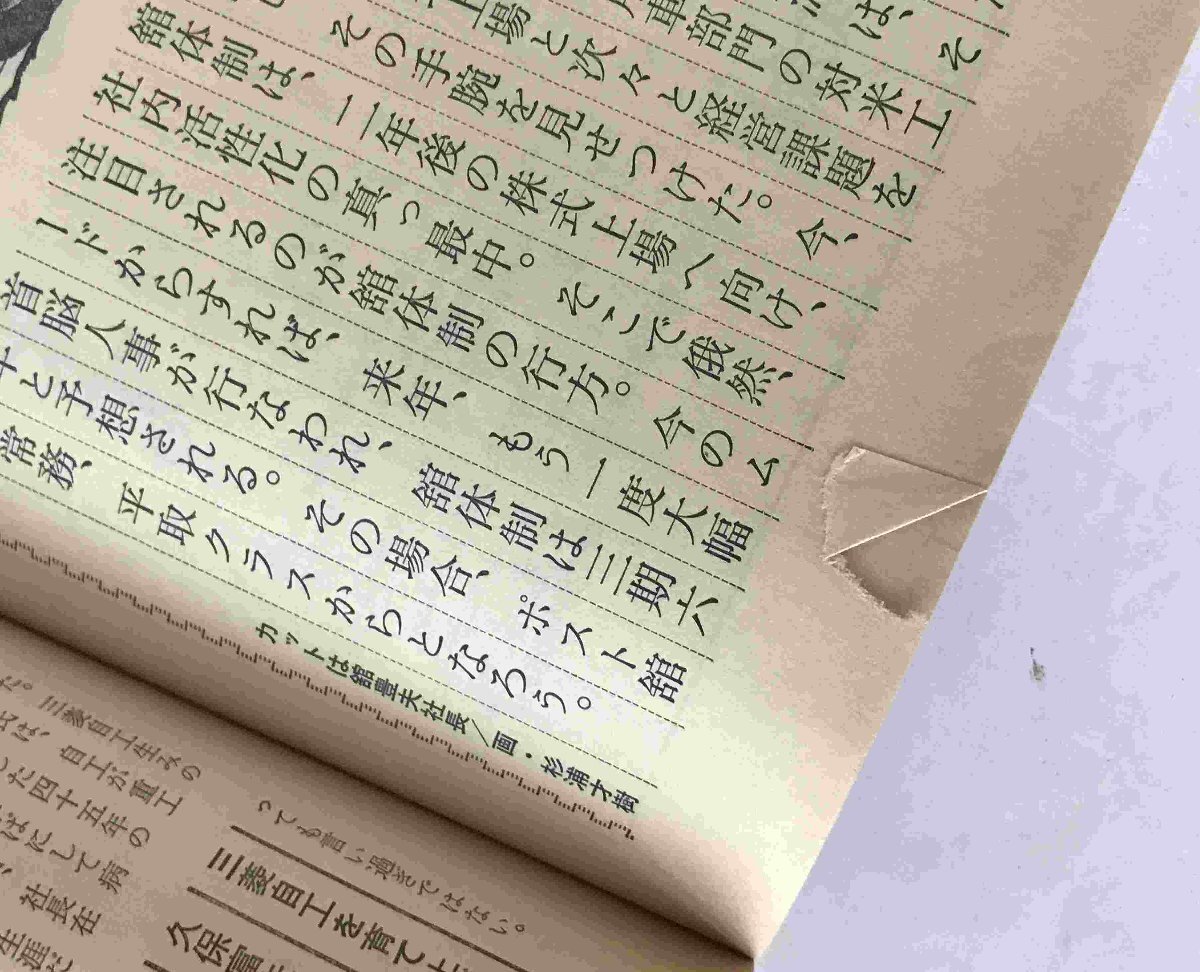 は、そ
車部門の対米工
上場と次々と経営課題を
その手腕を見せつけた。今、
舘体制は、二年後の株式上場へ向け、
社内活性化の真っ最中。そこで俄然、
注目されるのが舘体制の行方。今のム
ードからすれば、来年、もう一度大幅
首脳人事が行なわれ、舘体制は三期六
と予想される。その場合、ポスト舘
常務、平取クラスからとなろう。
カットは舘豊夫社長／画・杉浦才樹
た。三菱自工生みの
氏は、自工が重工
した四十五年の
ばにして病
社長在
生涯
っても言い過ぎではない。
三菱自工を育て上
久保富